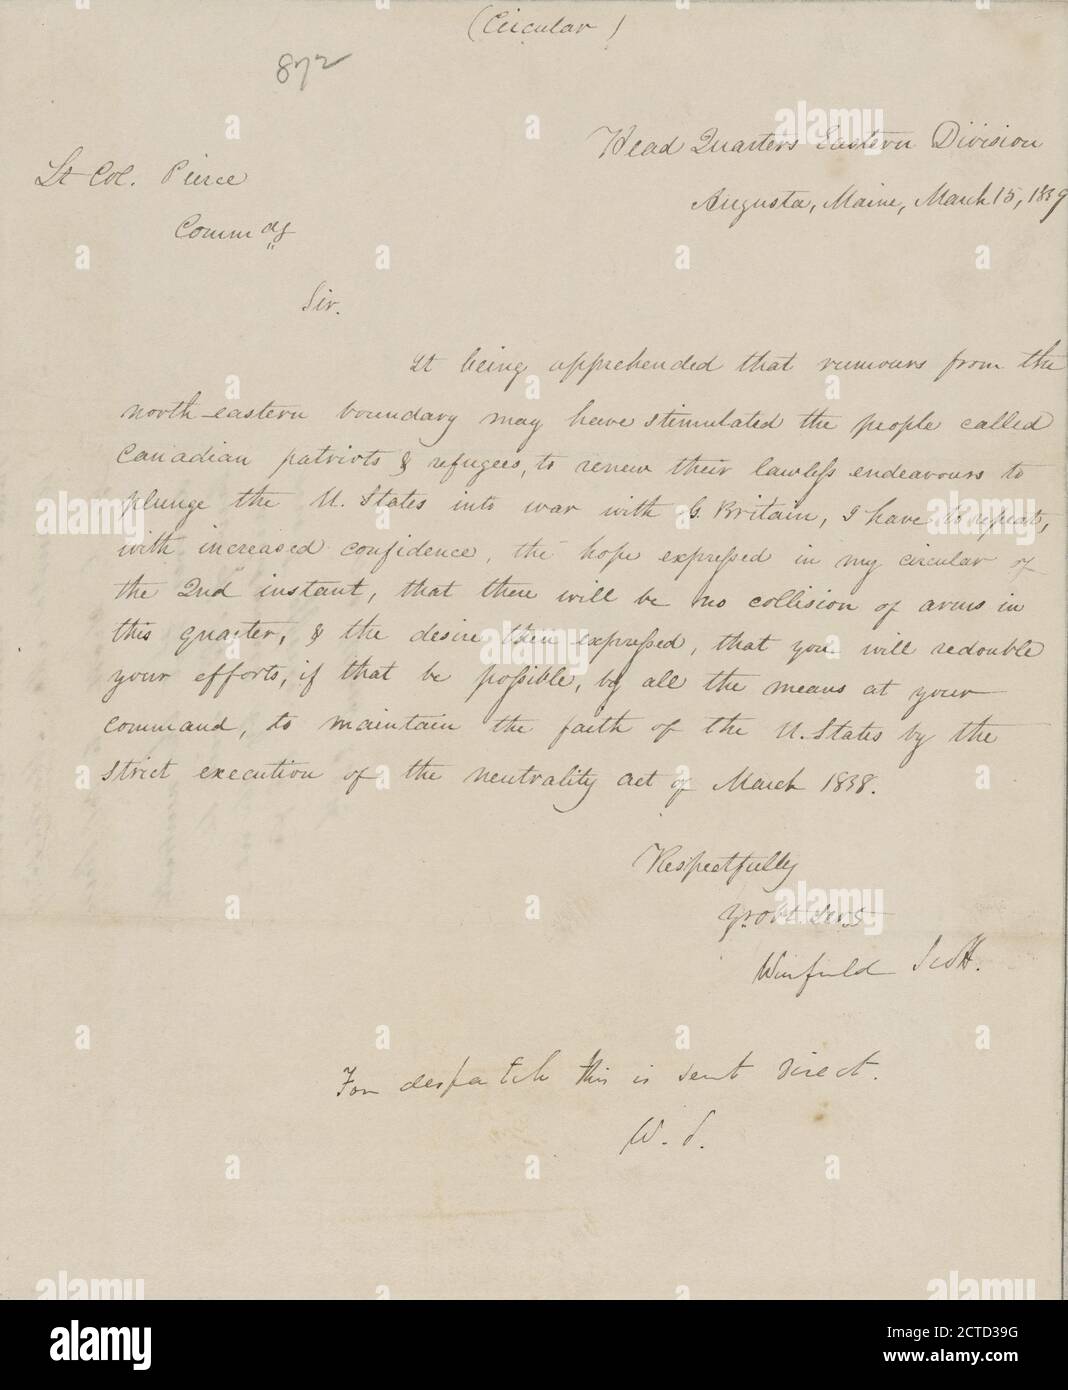 (Circular)
872
Head Quarters Eastern Division
Augusta, Maine, March 15, 1839
Lt Col. Pierce
Commdg
Sir.
It being apprehended that rumours from the
north-eastern boundary may have stimulated the people called
Canadian patriots & refugees, to renew their lawless endeavours to
plunge the U. States into war with G. Britain, I have to repeat,
with increased confidence, the hope expressed in my circular of
the 2nd instant, that there will be no collision of arms in
this quarter, & the desire then expressed, that you will redouble
your efforts, if that be possible, by all the means at your
command, to maintain the faith of the U. States by the
strict execution of the neutrality act of March 1838.
Respectfully
Yr. obt. Servt
Winfield Scott.
For despatch this is sent direct.
W. S.
alamy
Image ID: 2CTD39G
www.alamy.com